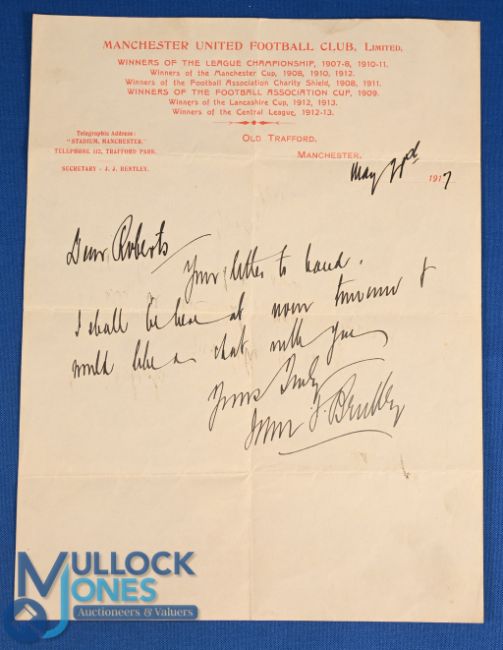 MANCHESTER UNITED FOOTBALL CLUB, LIMITED.
WINNERS OF THE LEAGUE CHAMPIONSHIP, 1907-8, 1910-11.
Winners of the Manchester Cup, 1908, 1910, 1912.
Winners of the Football Association Charity Shield, 1908, 1911.
WINNERS OF THE FOOTBALL ASSOCIATION CUP, 1909.
Winners of the Lancashire Cup, 1912, 1913.
Winners of the Central League, 1912-13.
Telegraphic Address:
"STADIUM, MANCHESTER."
TELEPHONE 112, TRAFFORD PARK.
SECRETARY - J. J. BENTLEY.
OLD TRAFFORD,
MANCHESTER,
May 1917
Dear Roberts
Your letter to hand.
I shall be here at noon tomorrow &
would like a chat with you
Yours Truly
John J. Bentley
MULLOCK
JONES
Auctioneers & Valuers